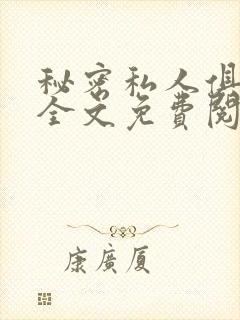 秘密私人俱
全文免費閱
康廣厦